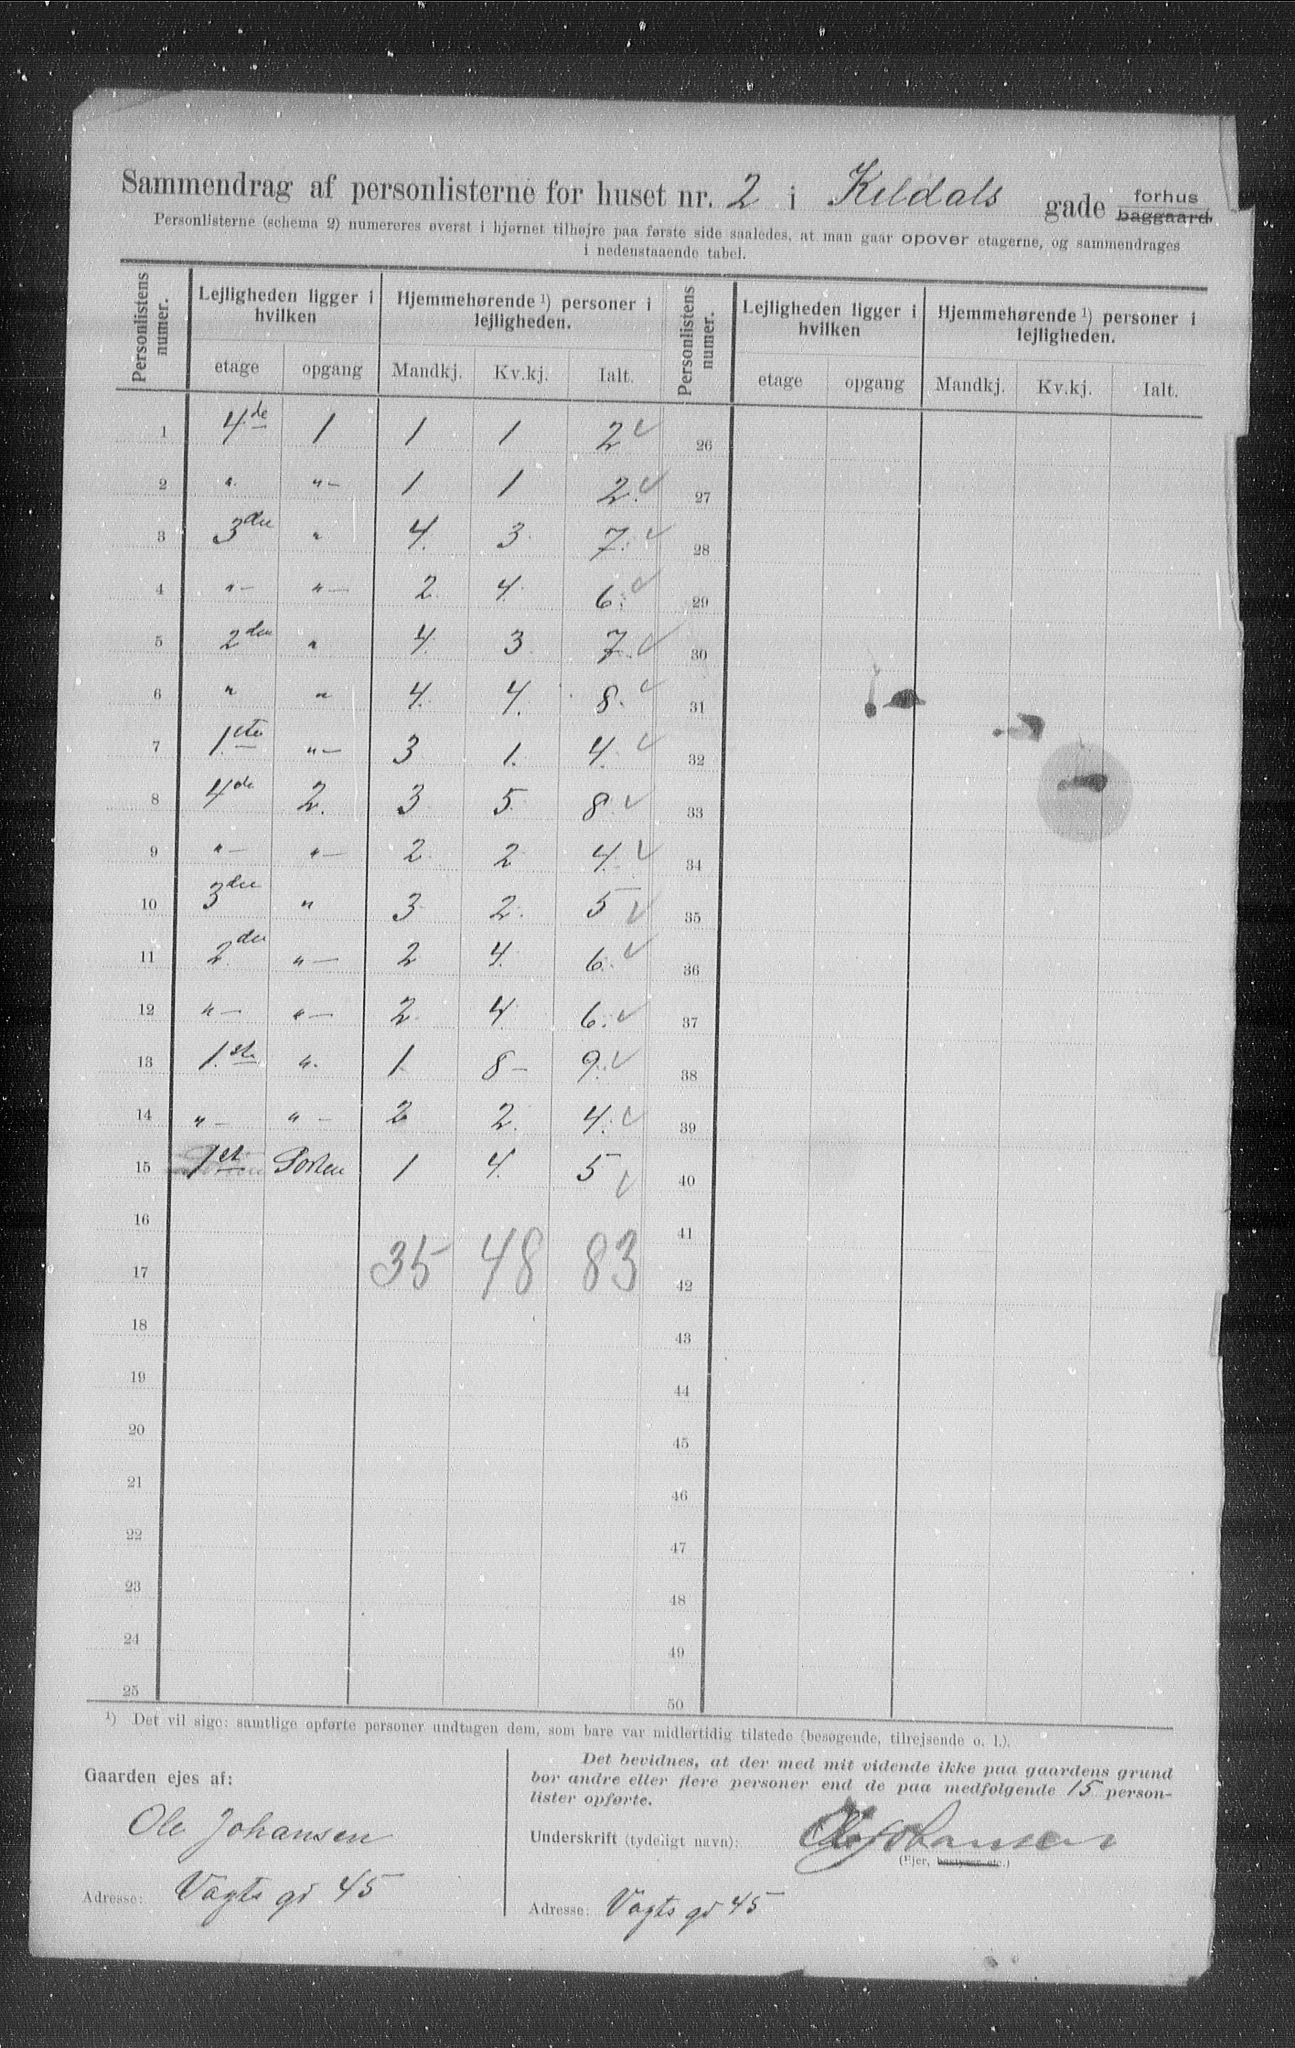 Sammendrag af personlisterne for huset nr. 2 i Keldals gade forhus baggaard.
Personlisterne (schema 2) numereres øverst i hjørnet tilhøjre paa første side saaledes, at man gaar opover etagerne, og sammendrages
i nedenstaaende tabel.
Personlistens numer. Lejligheden ligger i hvilken Hjemmehørende ¹) personer i lejligheden. Personlistens numer. Lejligheden ligger i hvilken Hjemmehørende ¹) personer i lejligheden.
etage opgang Mandkj. Kv.kj. Ialt. etage opgang Mandkj. Kv.kj. Ialt.
1 4de 1 1 1 2 ✓ 26
2 " "— 1 1 2. ✓ 27
3 3die " 4. 3 7. ✓ 28
4 "— "— 2 4. 6. ✓ 29
5 2den " 4. 3 7. ✓ 30
6 " " 4. 4. 8. ✓ 31
7 1.ste "— 3 1. 4. ✓ 32
8 4de 2. 3 5. 8. ✓ 33
9 "— "— 2 2 4. ✓ 34
10 3die " 3 2. 5 ✓ 35
11 2.den "— 2 4. 6. ✓ 36
12 "— "— 2 4 6. ✓ 37
13 1.ste ". 1 8— 9. ✓ 38
14 "— "— 2 2. 4. ✓ 39
15 1st Porten 1 4. 5 ✓ 40
16 41
17 35 48 83 42
18 43
19 44
20 45
21 46
22 47
23 48
24 49
25 50
¹) Det vil sige: samtlige opførte personer undtagen dem, som bare var midlertidig tilstede (besøgende, tilrejsende o. l.).
Gaarden ejes af:
Ole Johansen
Adresse: Vogts gd 45
Det bevidnes, at der med mit vidende ikke paa gaardens grund
bor andre eller flere personer end de paa medfølgende 15 person-
lister opførte.
Underskrift (tydeligt navn): Ole Johansen
(Ejer, bestyrer etc.)
Adresse: Vogts gd 45